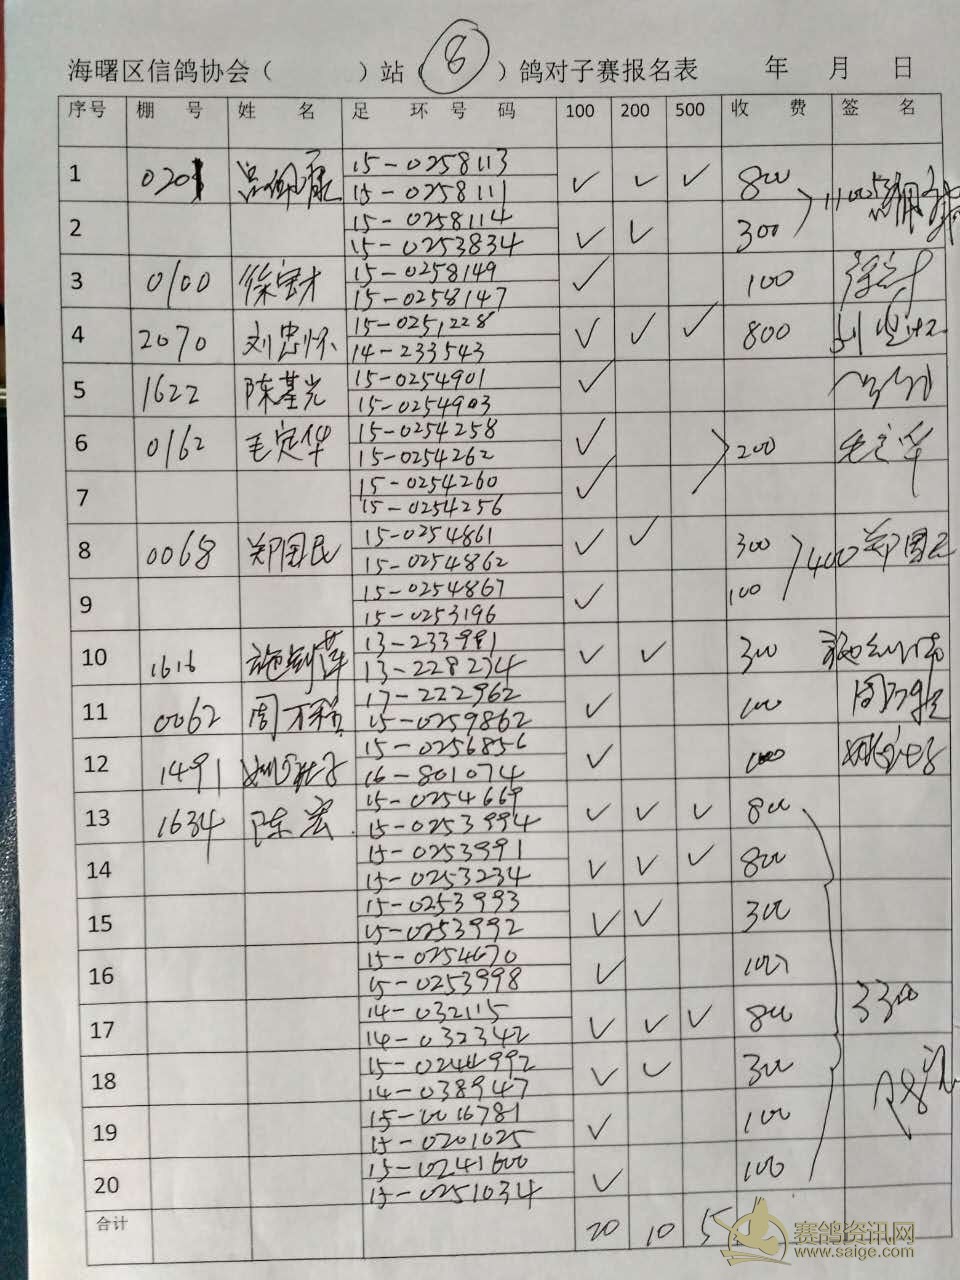 海曙区信鸽协会（ ）站（ 8 ）鸽对子赛报名表 年 月 日
序号 棚 号 姓 名 足 环 号 码 100 200 500 收 费 签 名
1 0201 15-0258113 ✓ ✓ ✓ 800 1100
15-0258111
2 15-0258114 ✓ ✓ 300
15-0253834
3 0100 徐宝才 15-0258149 ✓ 100
15-0258147
4 2070 刘忠怀 15-0251228 ✓ ✓ ✓ 800
14-233543
5 1622 陈基光 15-0254901 ✓
15-0254903
6 0162 毛定华 15-0254258 ✓ 200 毛定华
15-0254262
7 15-0254260 ✓
15-0254256
8 0068 郑国民 15-0254861 ✓ ✓ 300 400 郑国民
15-0254862
9 15-0254867 ✓ 100
15-0253196
10 1616 13-233991 ✓ ✓ 300
13-228234
11 0062 17-222962 ✓ 100
15-0259862
12 1491 15-0256856 ✓ 100
16-801074
13 1634 陈宏 15-0254669 ✓ ✓ ✓ 800
15-0253994
14 15-0253991 ✓ ✓ ✓ 800
15-0253234
15 15-0253993 ✓ ✓ 300
15-0253992
16 15-0254670 ✓ 100
15-0253998
17 14-032115 ✓ ✓ ✓ 800 3300
14-032342
18 15-0244992 ✓ ✓ 300
14-038947
19 15-0016781 ✓ 100
15-0201025
20 15-0241600 ✓ 100
15-0251034
合计 20 10 5
赛鸽资讯网
www.saige.com